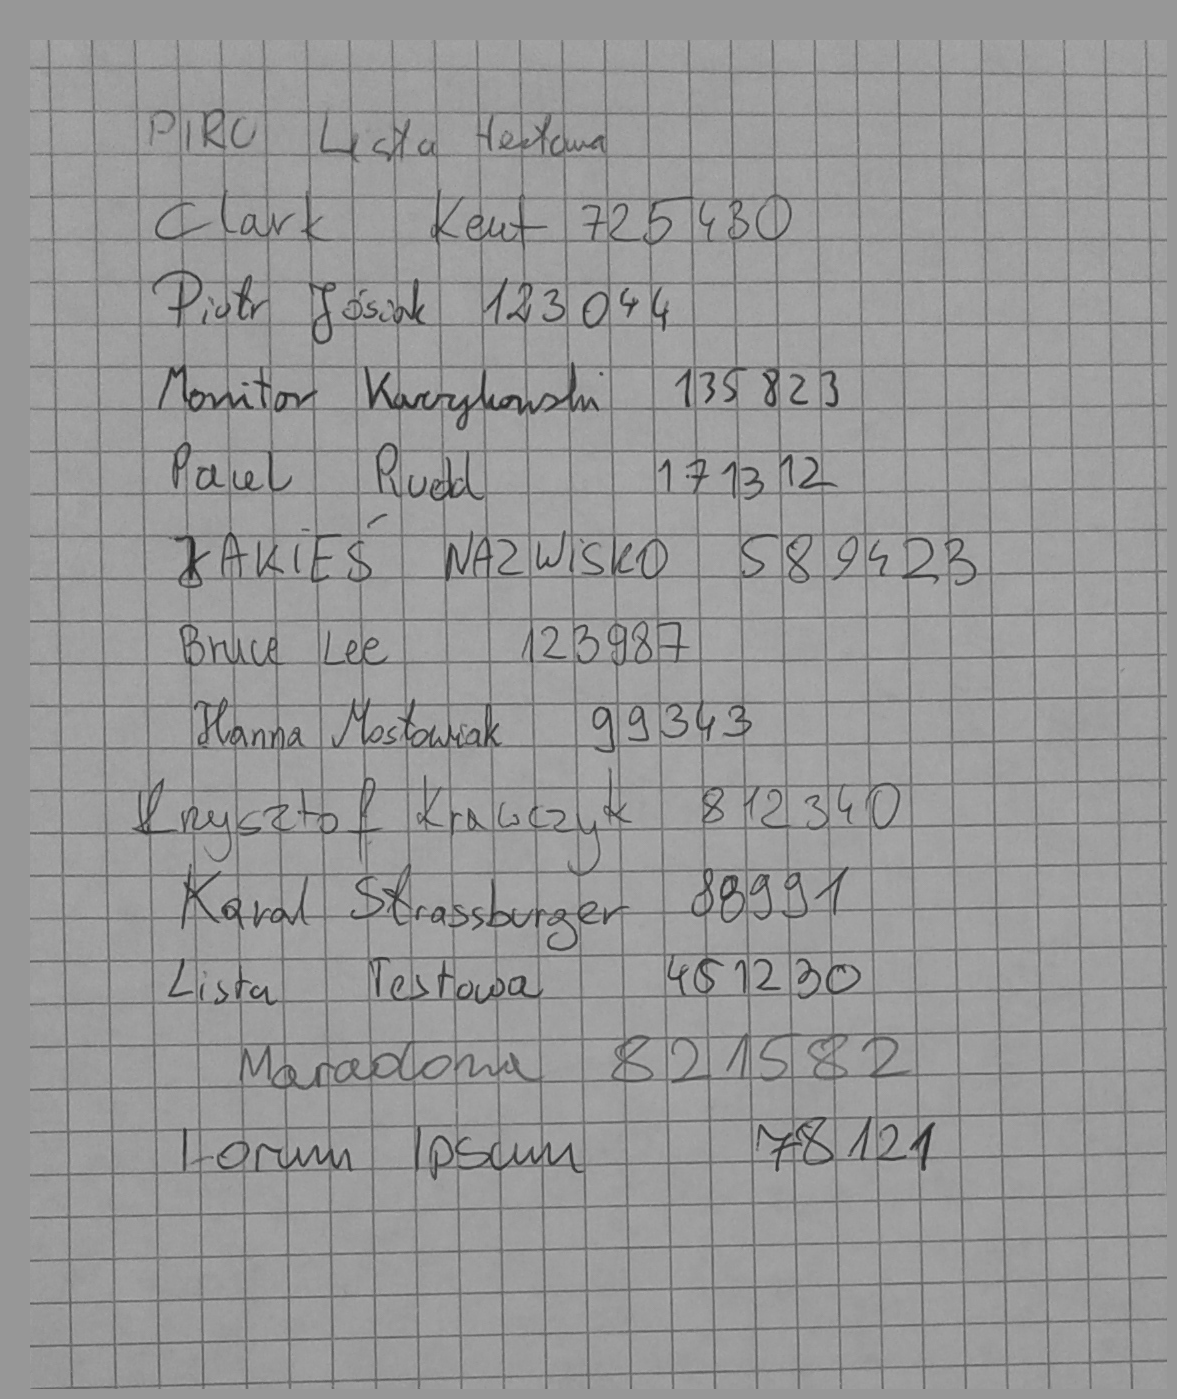 PIRO Lista testowa
Clark Kent 725430
Piotr Jósiak 123044
Monitor Karzykowski 135823
Paul Rudd 171312
JAKIEŚ NAZWISKO 589423
Bruce Lee 123987
Hanna Mostowiak 99343
Krzysztof Krawczyk 812340
Karol Strassburger 88991
Lista Testowa 451230
Maradona 821582
Lorum Ipsum 78121